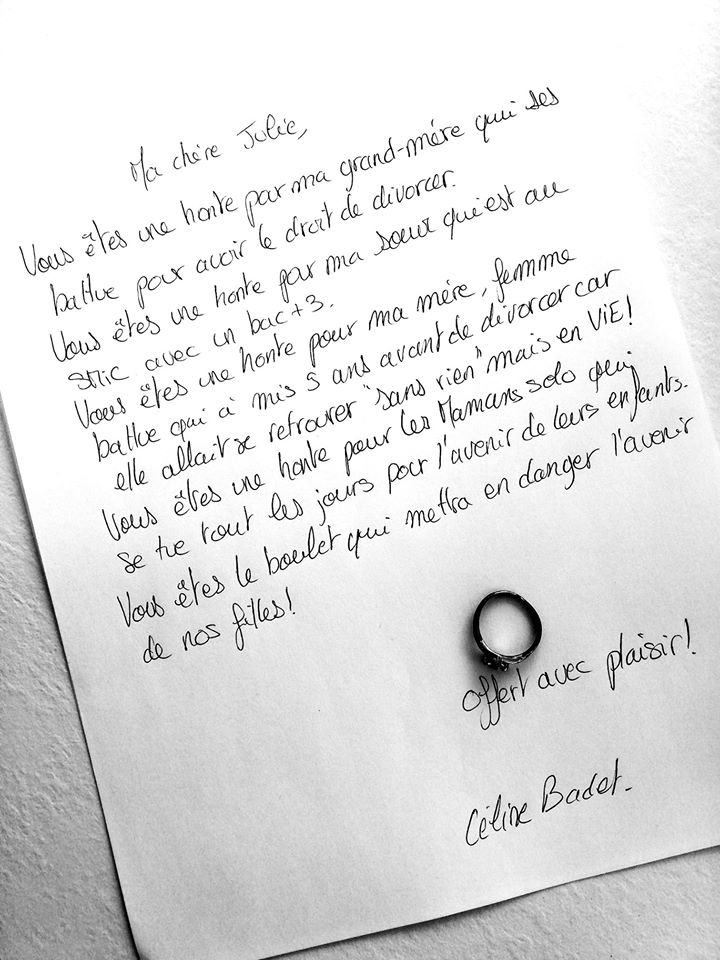 Ma chère Julie,
Vous êtes une honte par ma grand-mère qui ses
battue pour avoir le droit de divorcer.
Vous êtes une honte par ma sœur qui est au
smic avec un bac+3.
Vous êtes une honte pour ma mère, femme
battue qui à mis 5 ans avant de divorcer car
elle allait se retrouver "sans rien" mais en ViE!
Vous êtes une honte pour les Mamans solo qui
se tue tout les jours pour l'avenir de leurs enfants.
Vous êtes le boulet qui mettra en danger l'avenir
de nos filles!
Offert avec plaisir!
Céline Badet.